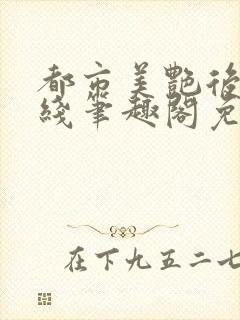 都市美艷後
綫筆趣閣免
在下九五二七